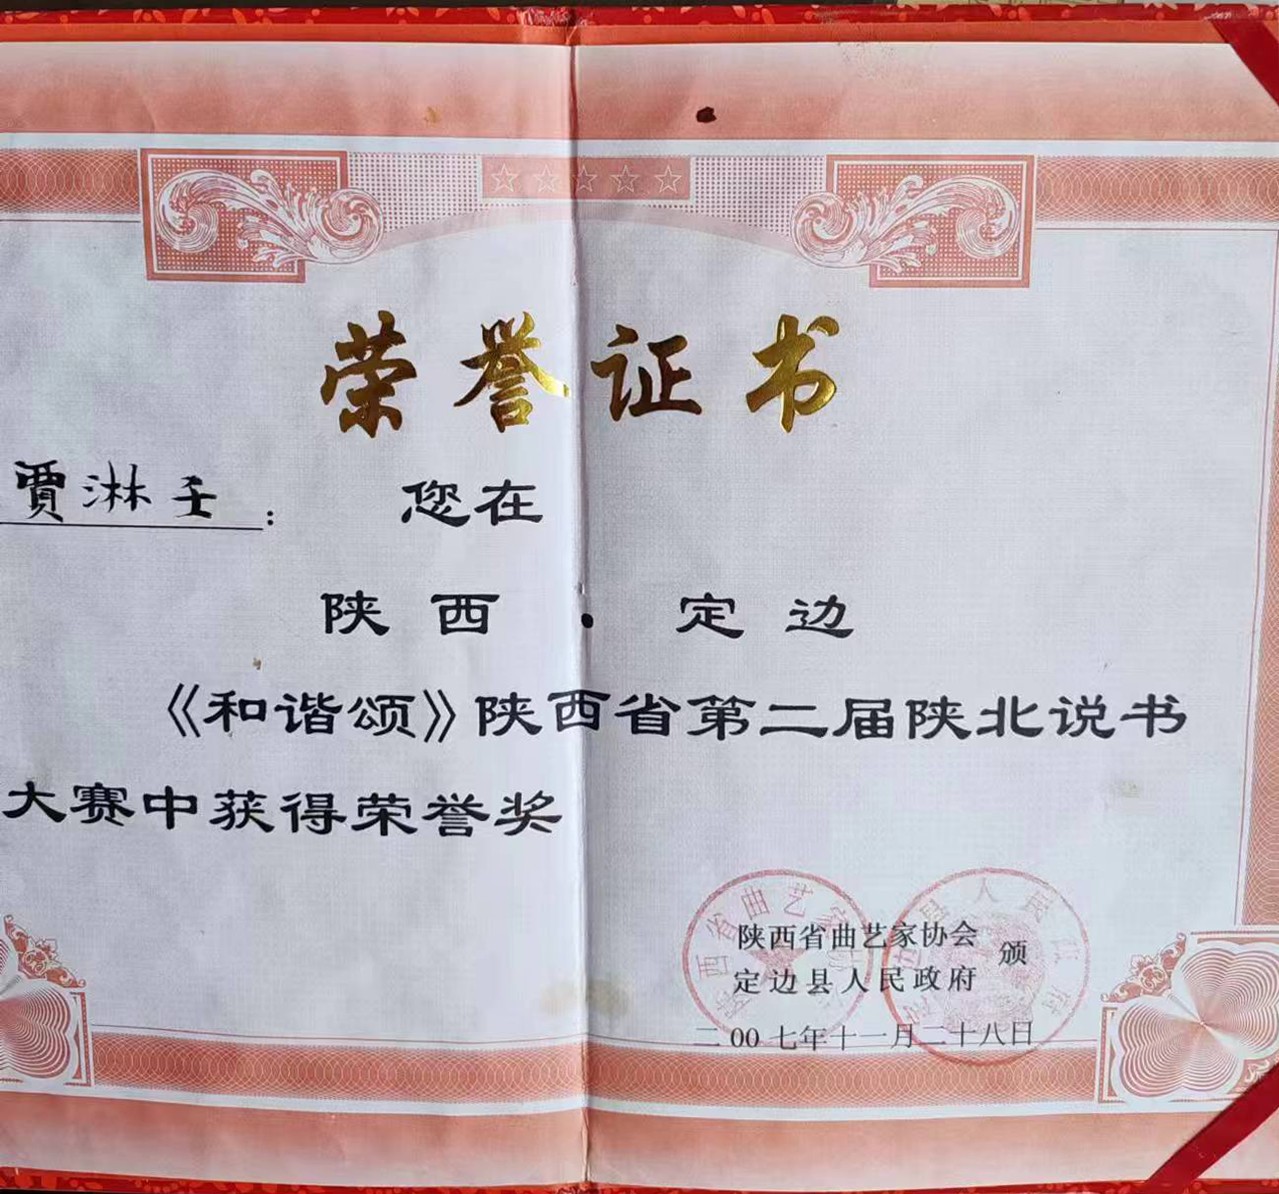 荣誉证书
賈淋壬： 您在
陕西·定边
《和谐颂》陕西省第二届陕北说书
大赛中获得荣誉奖
陕西省曲艺家协会
定边县人民政府 颁
二00七年十一月二十八日